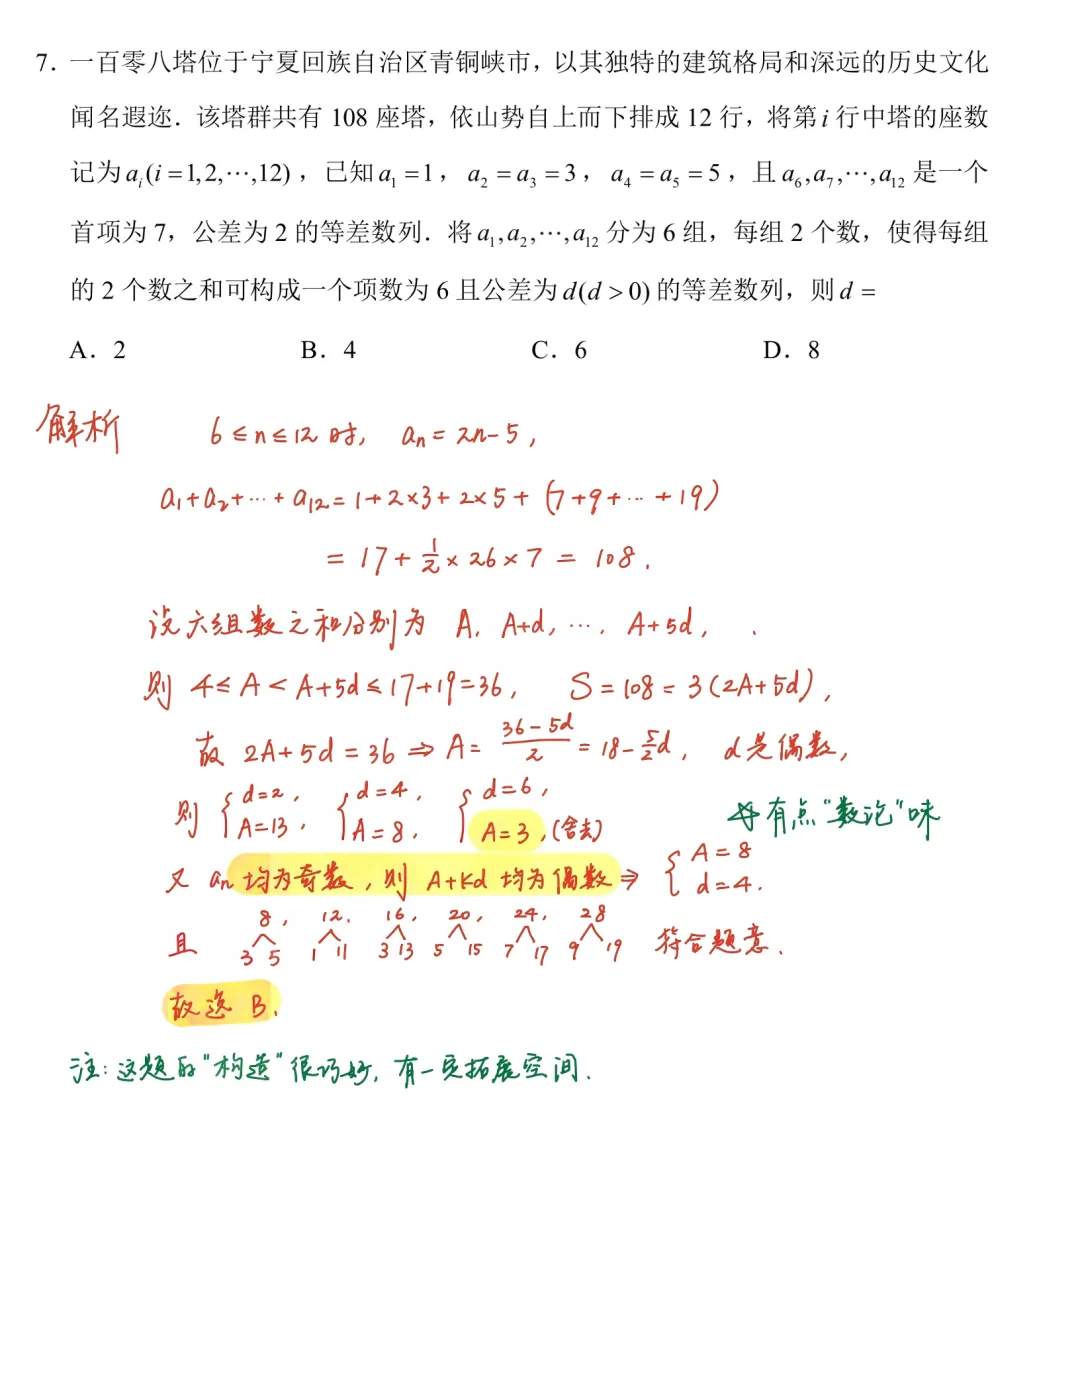 7．一百零八塔位于宁夏回族自治区青铜峡市，以其独特的建筑格局和深远的历史文化
闻名遐迩．该塔群共有 108 座塔，依山势自上而下排成 12 行，将第 i 行中塔的座数
记为 aᵢ(i =1,2,⋯,12)，已知 a₁ =1，a₂ = a₃ = 3，a₄ = a₅ = 5，且 a₆,a₇,⋯,a₁₂ 是一个
首项为 7，公差为 2 的等差数列．将 a₁,a₂,⋯,a₁₂ 分为 6 组，每组 2 个数，使得每组
的 2 个数之和可构成一个项数为 6 且公差为 d(d > 0) 的等差数列，则 d =
A．2 B．4 C．6 D．8
解析 6≤n≤12 时, aₙ = 2n-5,
a₁+a₂+⋯+a₁₂ = 1+2×3+2×5+(7+9+⋯+19)
= 17+½×26×7 = 108.
设六组数之和分别为 A, A+d, ⋯, A+5d,
则 4≤A<A+5d≤17+19=36, S=108=3(2A+5d),
故 2A+5d=36 ⇒ A= (36-5d)/2 = 18-5/2 d, d是偶数,
则 { d=2, A=13, { d=4, A=8, { d=6, A=3, (舍去)
有点"数论"味
又 aₙ 均为奇数, 则 A+kd 均为偶数 ⇒ { A=8 d=4.
8, 12, 16, 20, 24, 28
且 3 5 1 11 3 13 5 15 7 17 9 19 符合题意.
故选 B.
注: 这题的"构造"很巧妙, 有一定拓展空间.